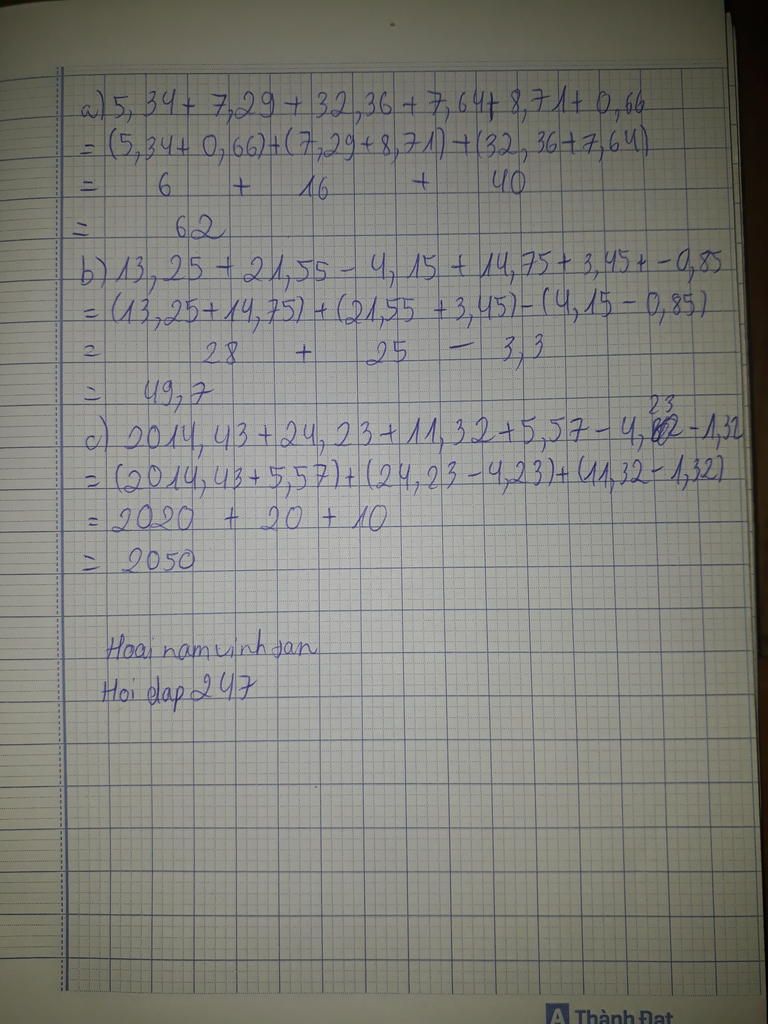 a) 5,34 + 7,29 + 32,36 + 7,64 + 8,71 + 0,66
= (5,34 + 0,66) + (7,29 + 8,71) + (32,36 + 7,64)
= 6 + 16 + 40
= 62
b) 13,25 + 21,55 - 4,15 + 14,75 + 3,45 + - 0,85
= (13,25 + 14,75) + (21,55 + 3,45) - (4,15 - 0,85)
= 28 + 25 - 3,3
= 49,7
c) 2014,43 + 24,23 + 11,32 + 5,57 - 4,23 - 1,32
= (2014,43 + 5,57) + (24,23 - 4,23) + (11,32 - 1,32)
= 2020 + 20 + 10
= 2050
Hoai nam vinh san
Hoi dap 247
A Thành Đạt